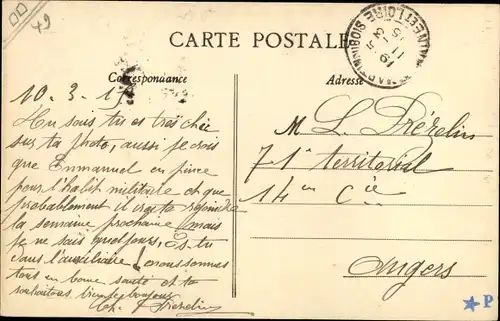 49
CARTE POSTALE
Correspondance
Adresse
10. 3. 1
tu es très chic
sur ta photo, aussi je crois
que Emmanuel en pince
pour l'habit militaire et que
probablement il ira te rejoindre
la semaine prochaine mais
je ne sais quel jour. Es-tu
dans l'auxiliaire nous sommes
tous en bonne santé et te
souhaitons bien le bonjour
M L.
71e territorial
14em Cie
Angers
P